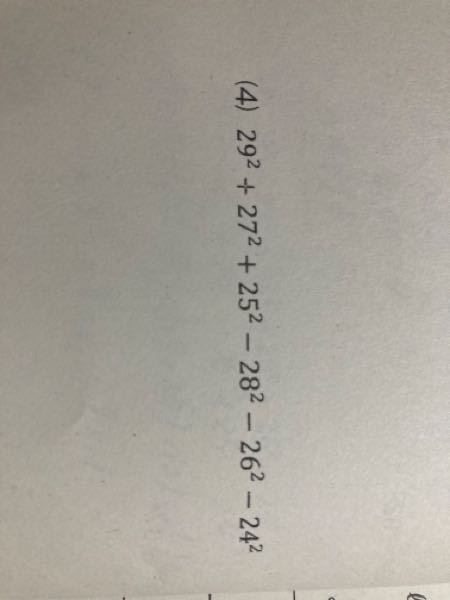 (4) 29² + 27² + 25² − 28² − 26² − 24²